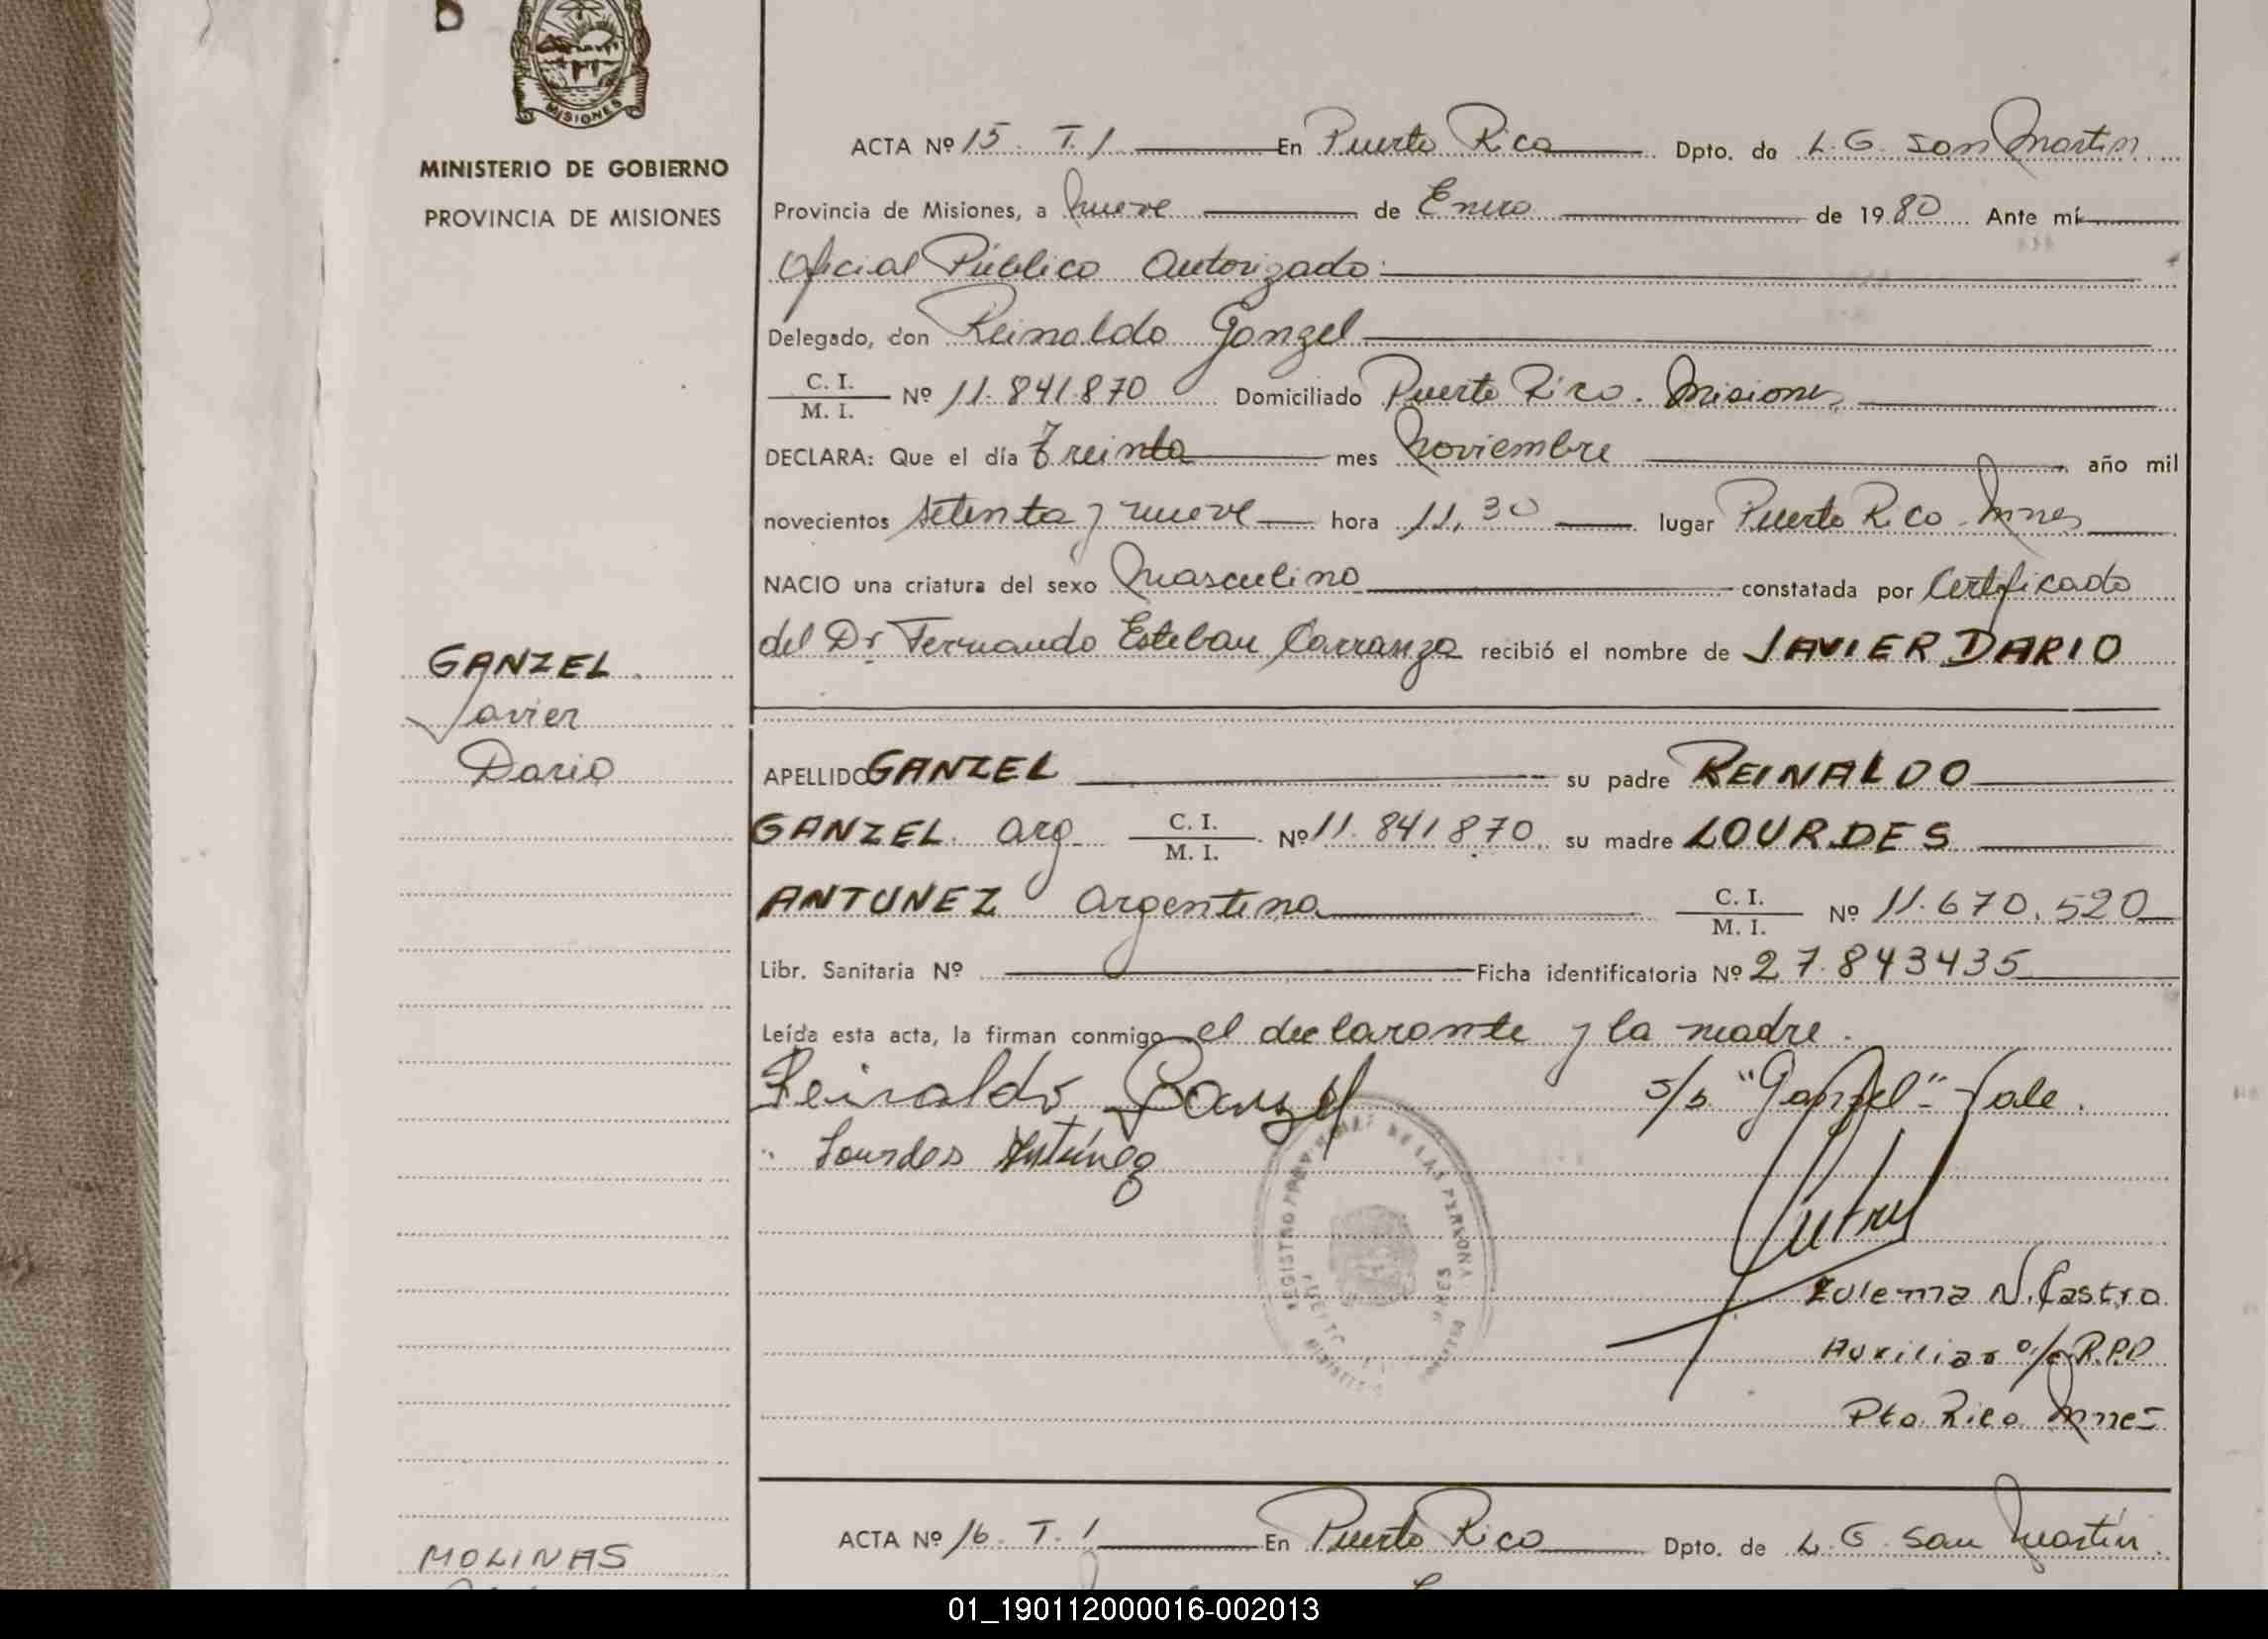 MISIONES
MINISTERIO DE GOBIERNO
PROVINCIA DE MISIONES
ACTA Nº 15 T. 1 En Puerto Rico Dpto. de L. G. San Martin
Provincia de Misiones, a nueve de Enero de 1980 Ante mí
Oficial Público Autorizado
Delegado, don Reinaldo Ganzel
C. I. / M. I. Nº 11.841.870 Domiciliado Puerto Rico. Misiones
DECLARA: Que el día treinta mes Noviembre año mil
novecientos setenta y nueve hora 11,30 lugar Puerto Rico Mnes
NACIO una criatura del sexo Masculino constatada por Certificado
del Dr Fernando Esteban Carranza recibió el nombre de JAVIER DARIO
GANZEL
Javier
Dario
APELLIDO GANZEL su padre REINALDO
GANZEL arg C. I. / M. I. Nº 11.841870 su madre LOURDES
ANTUNEZ argentina C. I. / M. I. Nº 11.670.520
Libr. Sanitaria Nº Ficha identificatoria Nº 27.843435
Leída esta acta, la firman conmigo el declarante y la madre.
Reinaldo Ganzel s/b "Ganzel" - Vale.
Lourdes Antúnez
REGISTRO DE LAS PERSONAS
Zulema N. Castro
Auxiliar R.P.P
Pto. Rico Mnes
ACTA Nº 16 T. 1 En Puerto Rico Dpto. de L. G. San Martin
MOLINAS
01_190112000016-002013